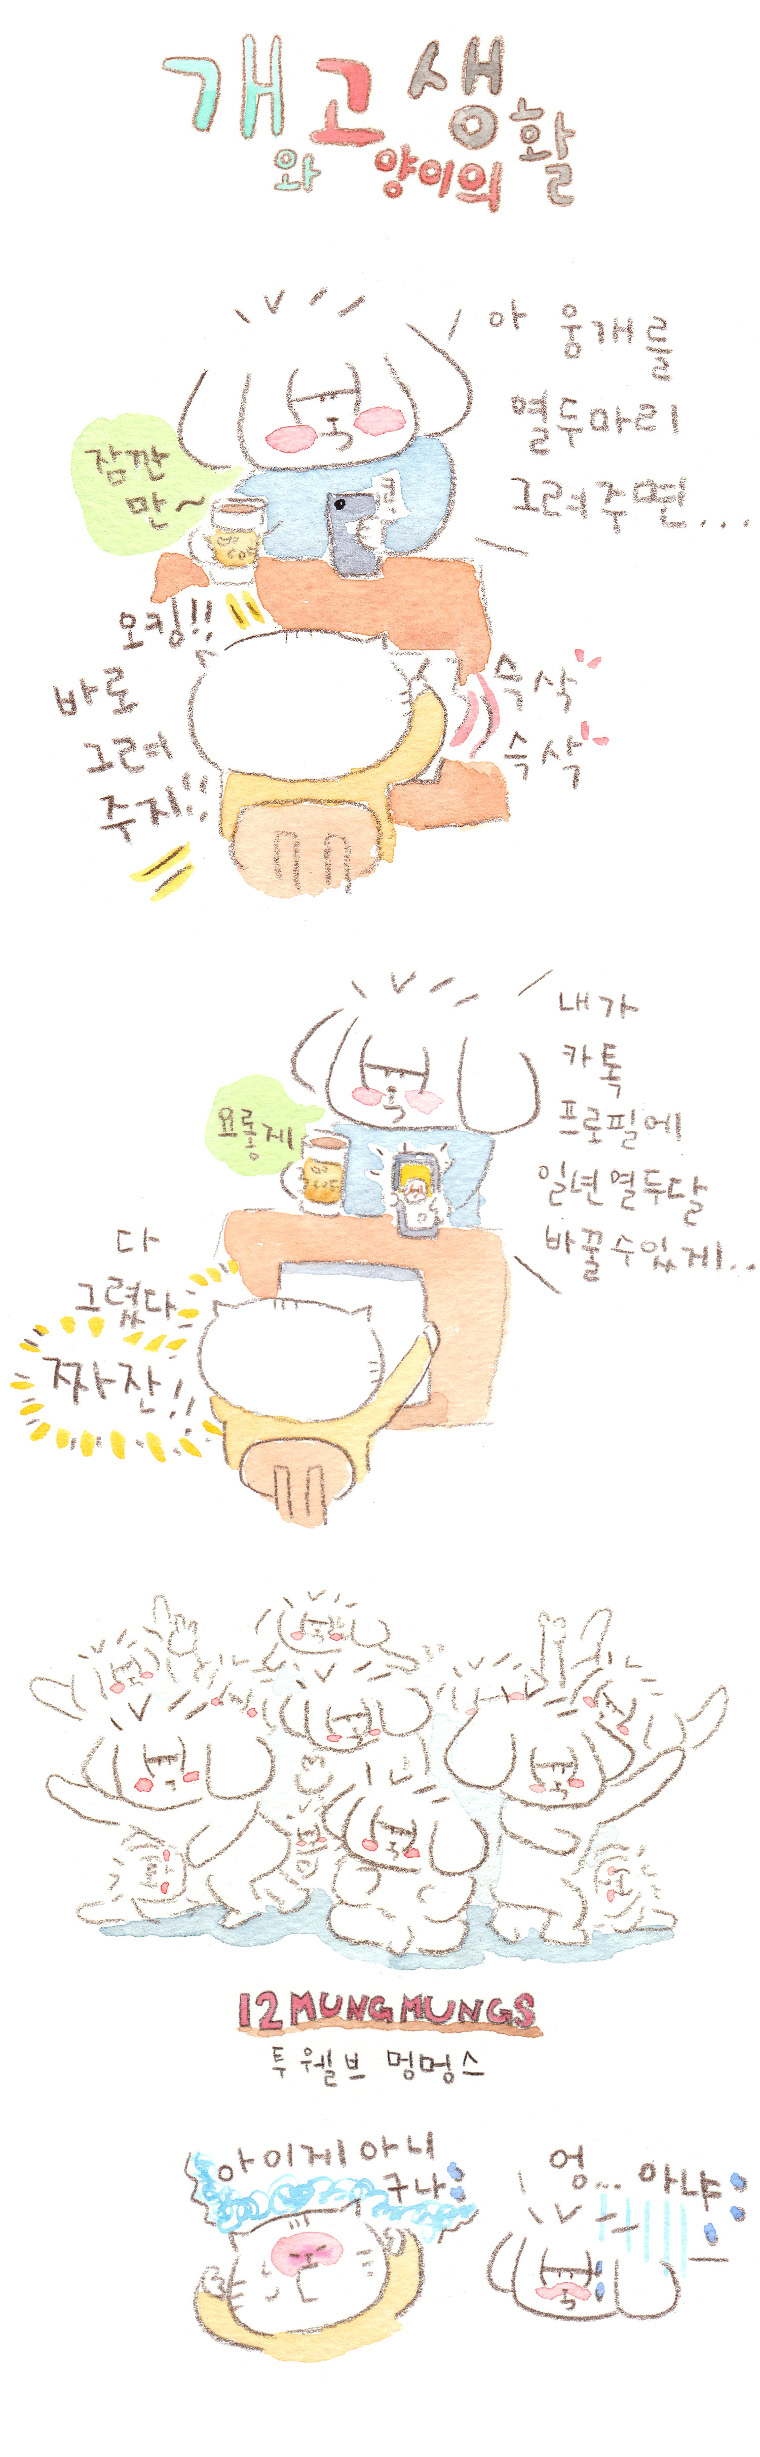 개고생
와 양이의 활
아 웅개를
열두마리
그려주면...
잠깐
만~
오킹!!
바로
그려
주지!!
슥삭
슥삭
내가
카톡
프로필에
일년열두달
바꿀수있게..
요롷게
다
그렸다
짜잔!!
12 MUNGMUNGS
투웰브 멍멍스
아이게아니
구나
엉... 아냐